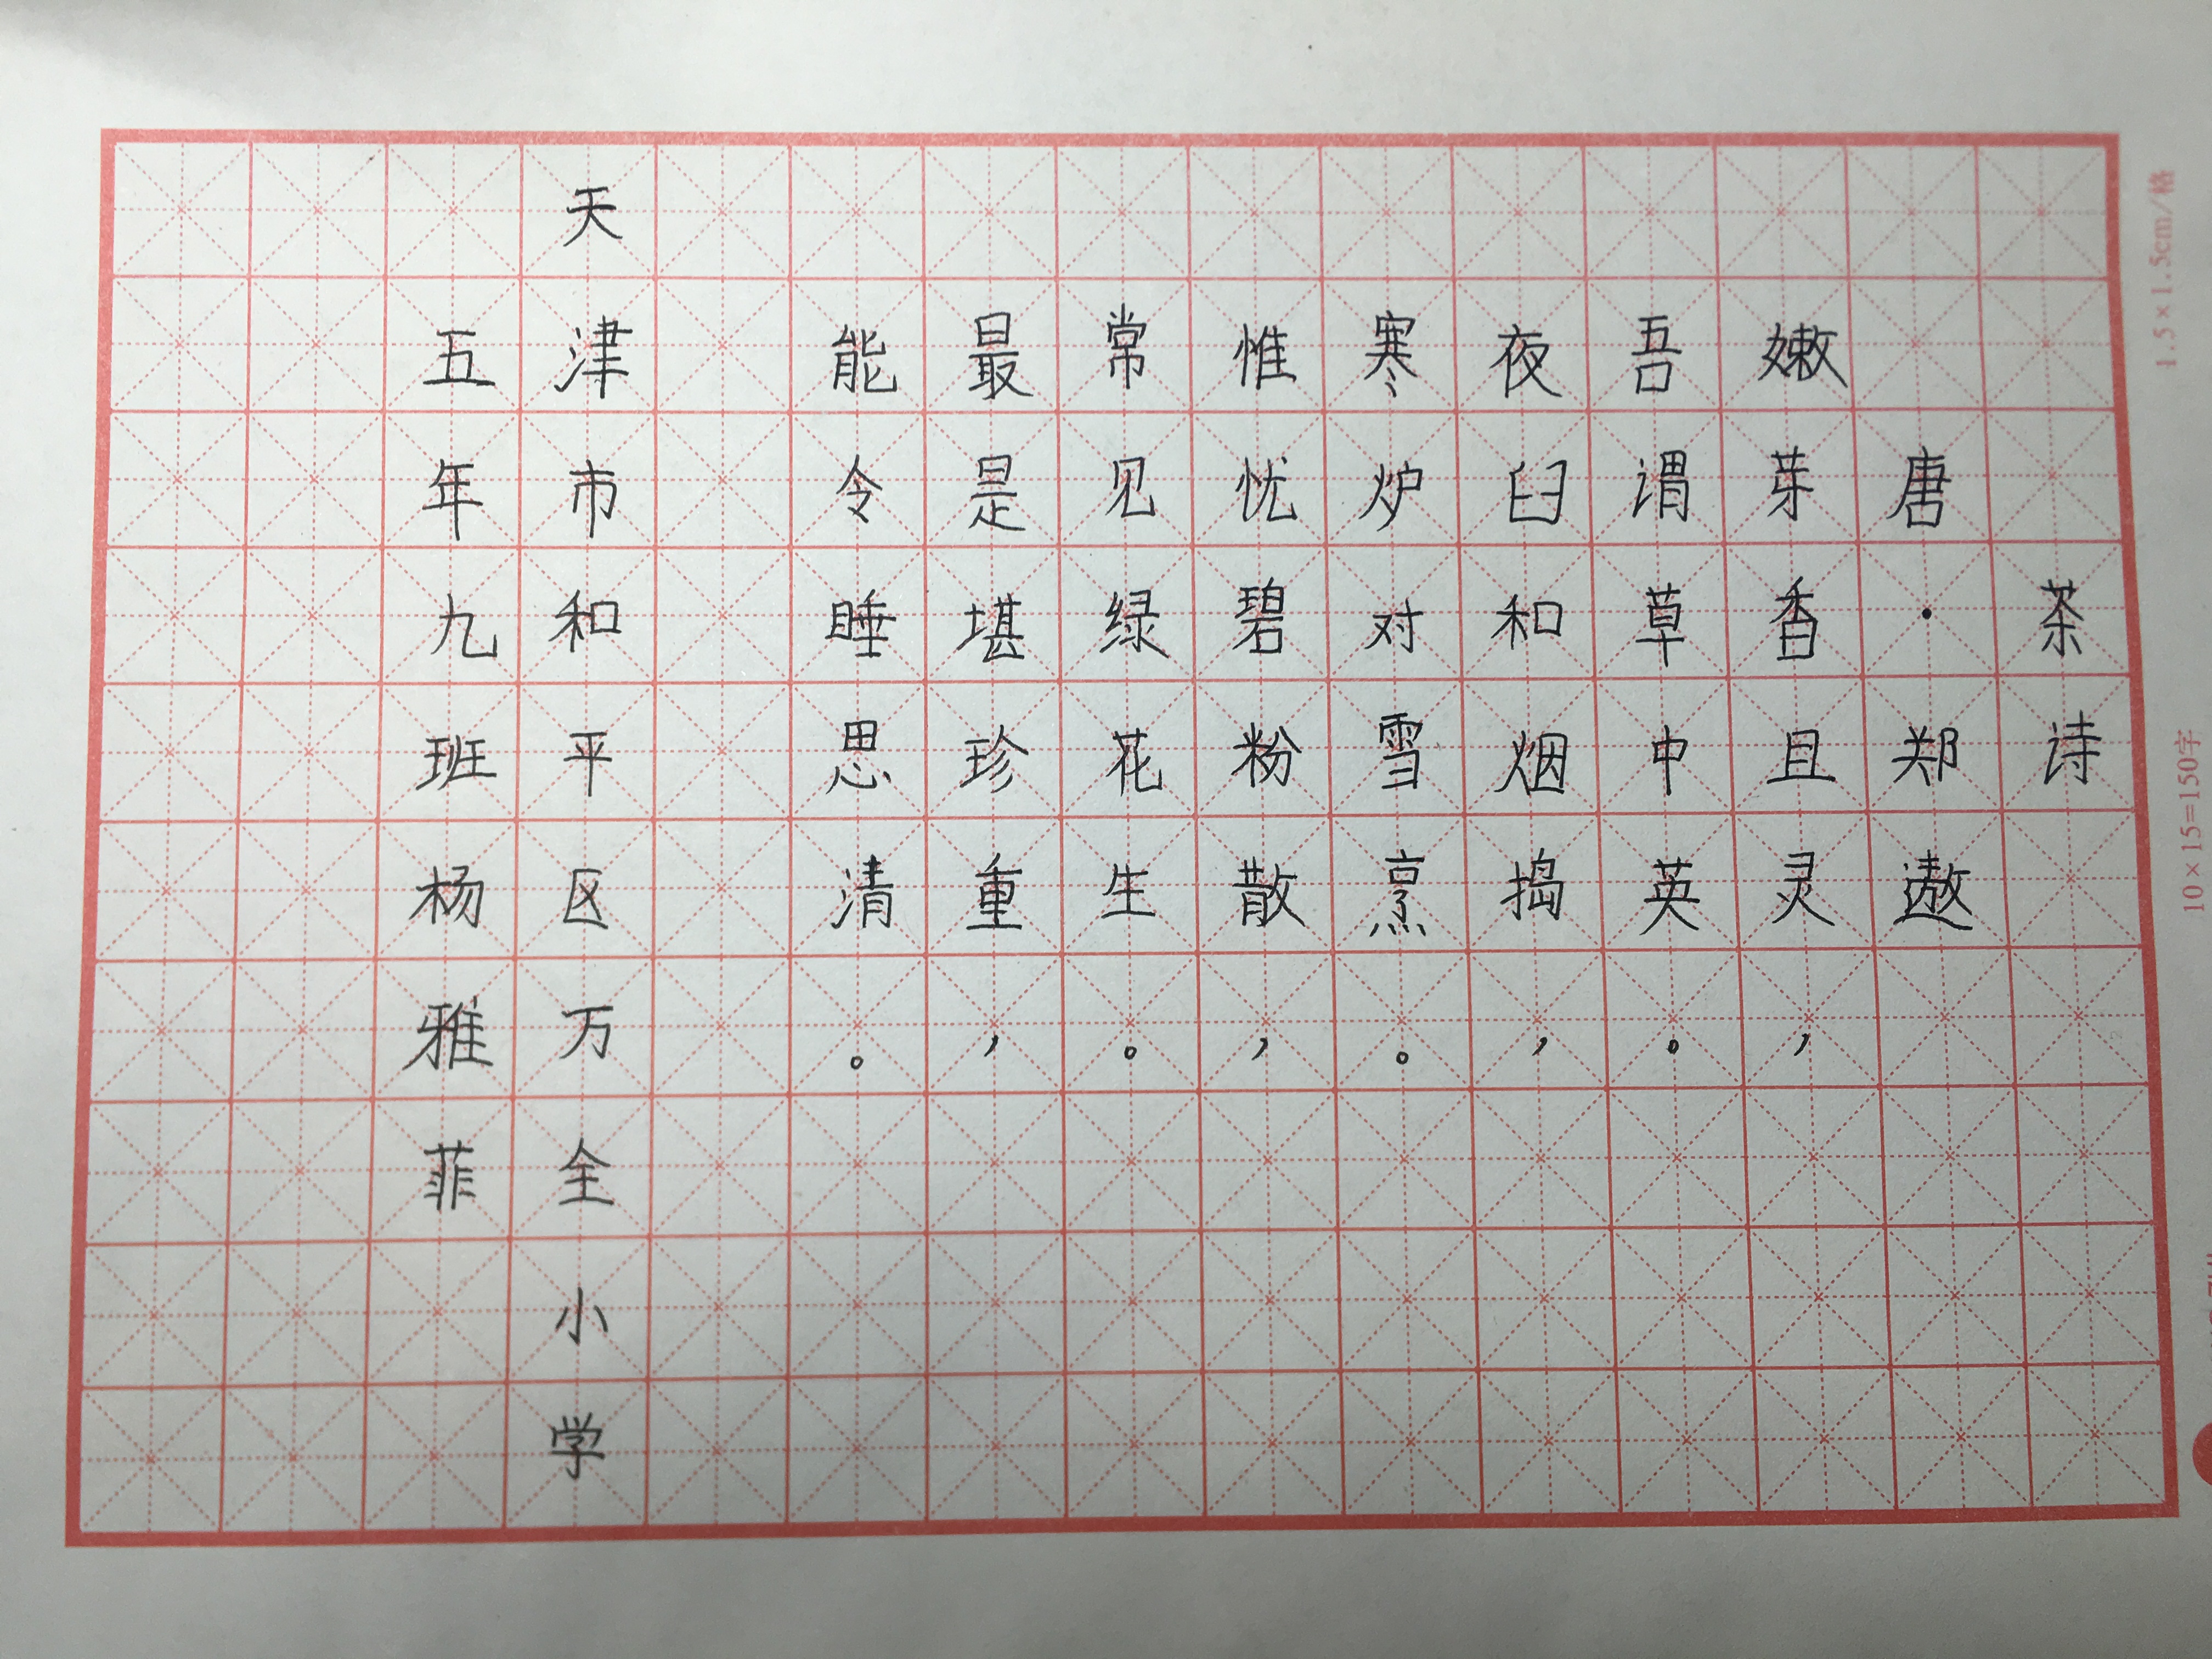 茶诗
唐·郑遨
嫩芽香且灵，
吾谓草中英。
夜臼和烟捣，
寒炉对雪烹。
惟忧碧粉散，
常见绿花生。
最是堪珍重，
能令睡思清。
天津市和平区万全小学
五年九班杨雅菲
1.5×1.5cm/格
10×15=150字